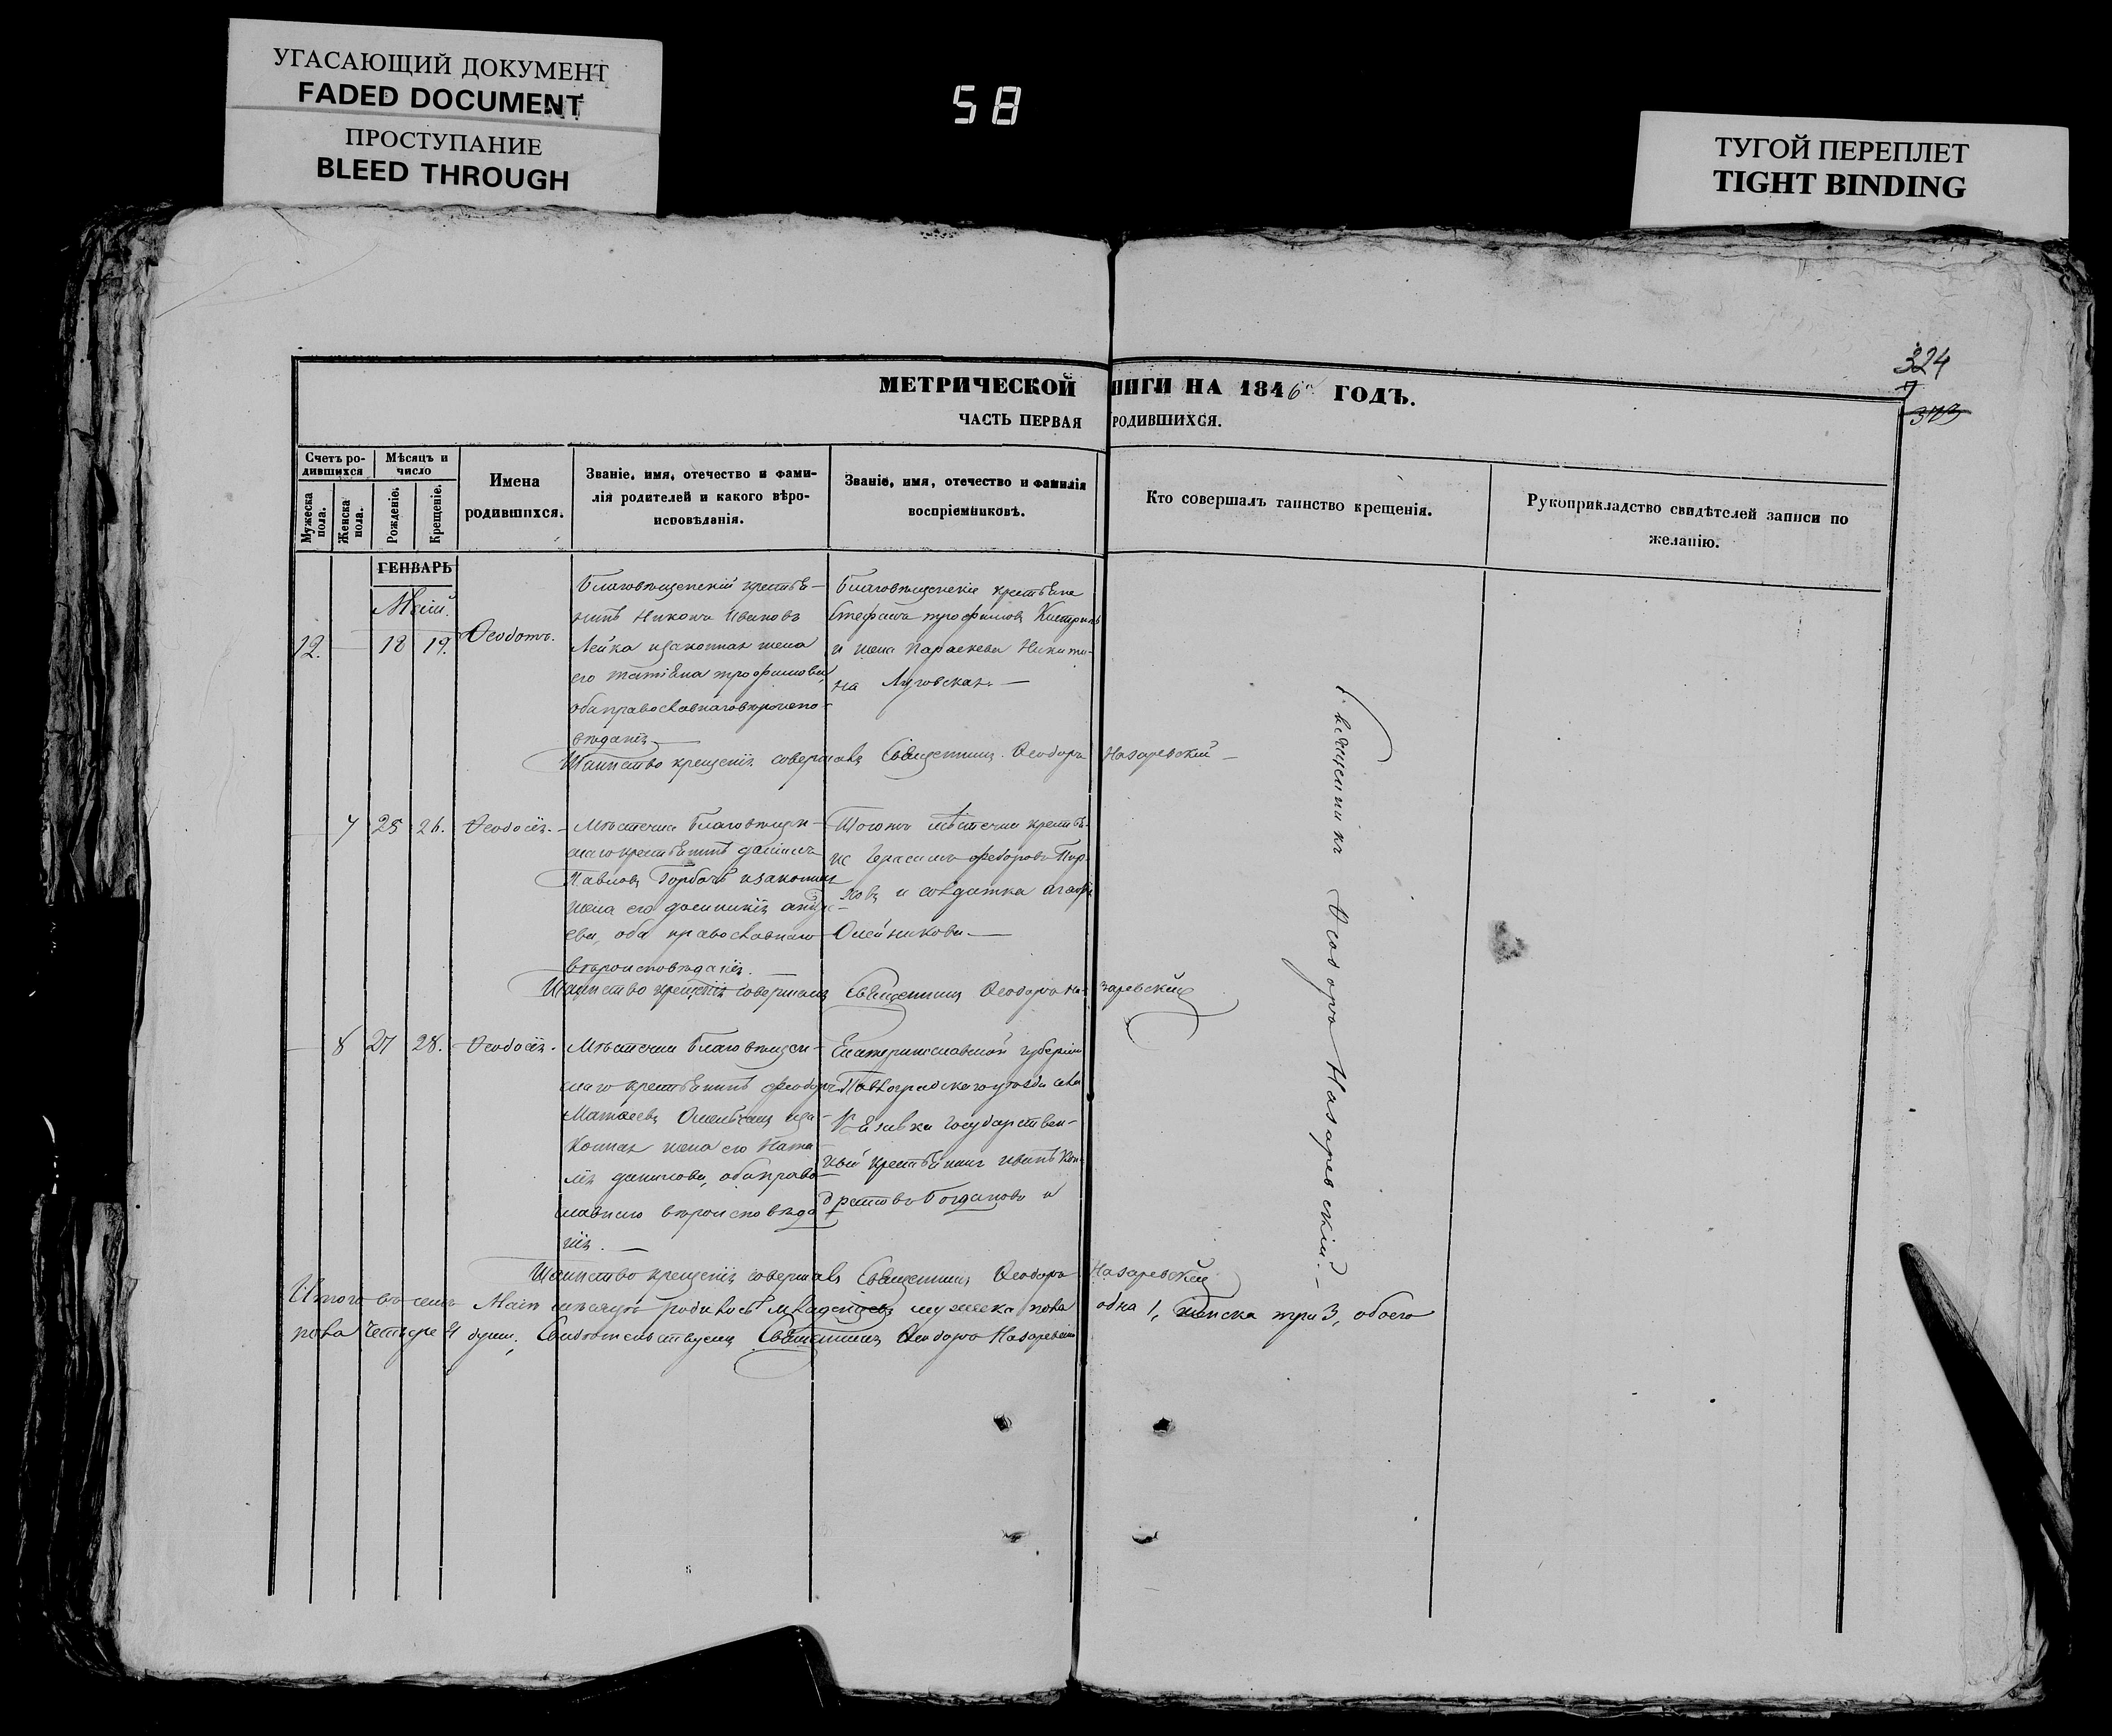 УГАСАЮЩИЙ ДОКУМЕНТ
FADED DOCUMENT
ПРОСТУПАНИЕ
BLEED THROUGH
58
ТУГОЙ ПЕРЕПЛЕТ
TIGHT BINDING
324
МЕТРИЧЕСКОЙ НИГИ НА 1846 ГОДЪ.
ЧАСТЬ ПЕРВАЯ РОДИВШИХСЯ.
Счетъ ро-
дившихся
Мужеска
пола.
Женска
пола.
Мѣсяцъ и
число
Рожденіе.
Крещеніе.
Имена
родившихся.
Званіе, имя, отечество и фами-
лія родителей и какого вѣро-
исповѣданія.
Званіе, имя, отечество и фамилія
воспріемниковъ.
Кто совершалъ таинство крещенія.
Рукоприкладство свидѣтелей записи по
желанію.
ГЕНВАРЬ
Маій.
12. — 18 19. Ѳеодотъ.
Благовѣщенскій крестья-
нинъ Никонъ Ивановъ
Лейка изаконная жена
его татіяна трофимова,
обаправославнаговѣроиспо-
вѣданія —
Благовѣщенскіе крестьяне
Стефанъ трофимовъ
и жена Параскева Никити-
на Луговская. —
Таинство крещенія совершалъ Священникъ Ѳеодоръ Назаревскій —
— 7 25 26. Ѳеодосія. —
Мѣстечка Благовѣщен-
скаго крестьянинъ даніилъ
Павловъ Горбачъ изаконная
жена его домникія андре-
ева, оба православнаго
вѣроисповѣданія. —
Тогожъ мѣстечка крестья-
не Герасимъ федоровъ
и солдатка
Олейникова —
Таинство крещенія совершалъ Священникъ Ѳеодоръ На-заревскій
— 8 27 28. Ѳеодосія.
Мѣстечка Благовѣщен-
скаго крестьянинъ феодоръ
Матвеевъ иза-
конная жена его Ната-
лія данилова, обаправо-
славнаго вѣроисповѣда-
нія. —
Екатеринославской губерніи
Павлоградскагоуѣзда села
государствен-
ный крестьянинъ иванъ Кон-
дратовъ Богдановъ и
Таинство крещенія совершалъ Священникъ Ѳеодоръ Назаревскій
Итого въ семъ Маіи мѣсяцѣ родилось младенцевъ мужеска пола одна 1, женска три 3, обоего
пола четыре 4 души, Свидѣтельствуемъ Священникъ Ѳеодоръ Назаревскій
Священникъ Ѳеодоръ Назаревскій. —